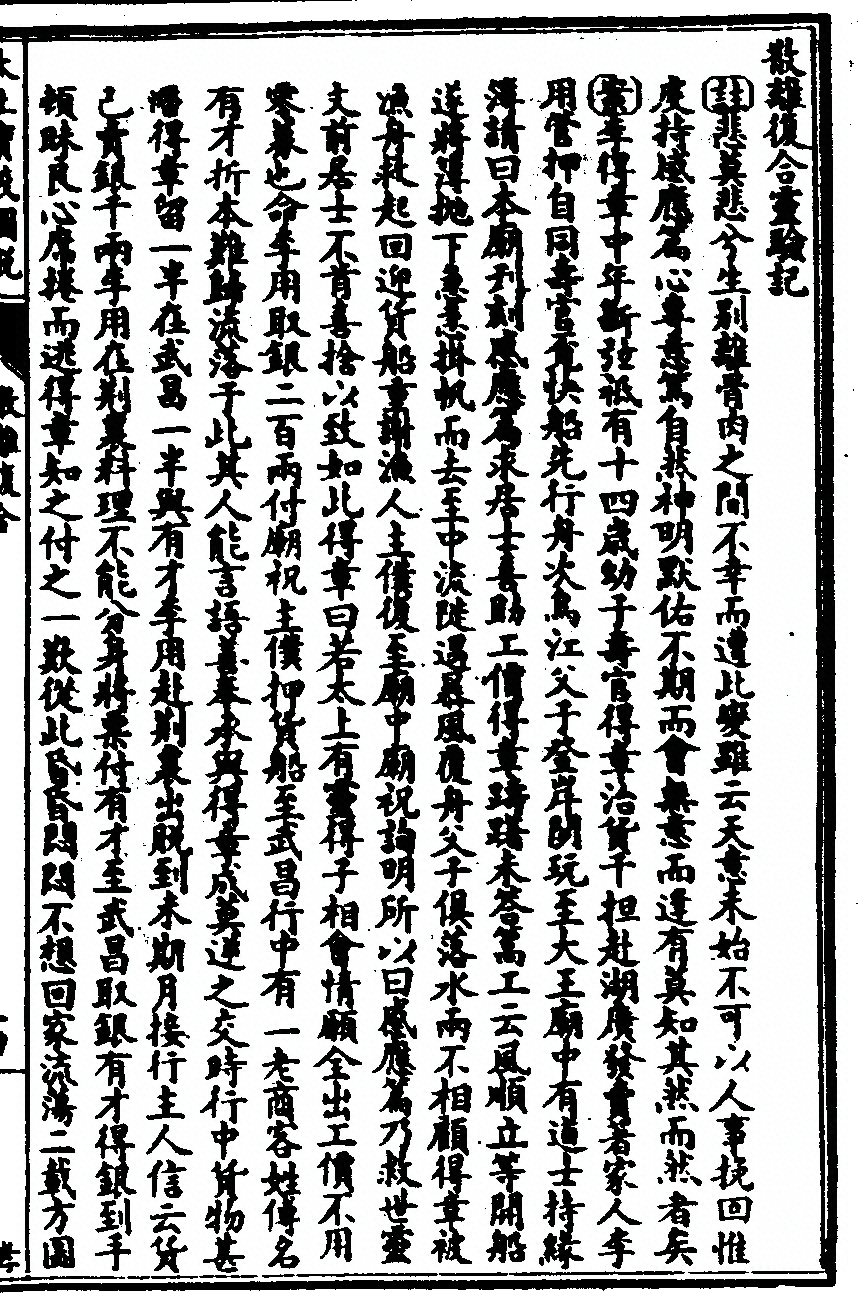 散離復合靈驗記
註悲莫悲兮生別離骨肉之間不幸而遭此變雖云天意未始不可以人事挽回惟
度持感應篇心專意篤自然神明默佑不期而會無意而逢有莫知其然而然者矣
案李得章中年斷弦祗有十四歲幼子壽官得章治貨千担赴湖廣發賣著家人李
用管押自同壽官竟快船先行舟次烏江父子登岸閒玩至大王廟中有道士持緣
簿請曰本廟刊刻感應篇求居士喜助工價得章躊躇未答篙工云風順立等開船
遂將簿拋下急急掛帆而去至中流陡遇暴風覆舟父子俱落水兩不相顧得章被
漁舟救起回迎貨船重謝漁人主僕復至廟中廟祝詢明所以曰感應篇乃救世靈
文前居士不肯喜捨以致如此得章曰若太上有靈得子相會情願全出工價不用
寒暮也命李用取銀二百兩付廟祝主僕押貨船至武昌行中有一老商客姓傅名
有才折本難歸流落于此其人能言語善奉承與得章成莫逆之交時行中貨物甚
壅得章留一半在武昌一半與有才李用赴荆襄出脫到未期月接行主人信云貨
已賣銀千兩李用在荆襄料理不能分身將票付有才至武昌取銀有才得銀到手
頓昧良心席捲而逃得章知之付之一歎從此昏昏悶悶不想回家流蕩二載方圖